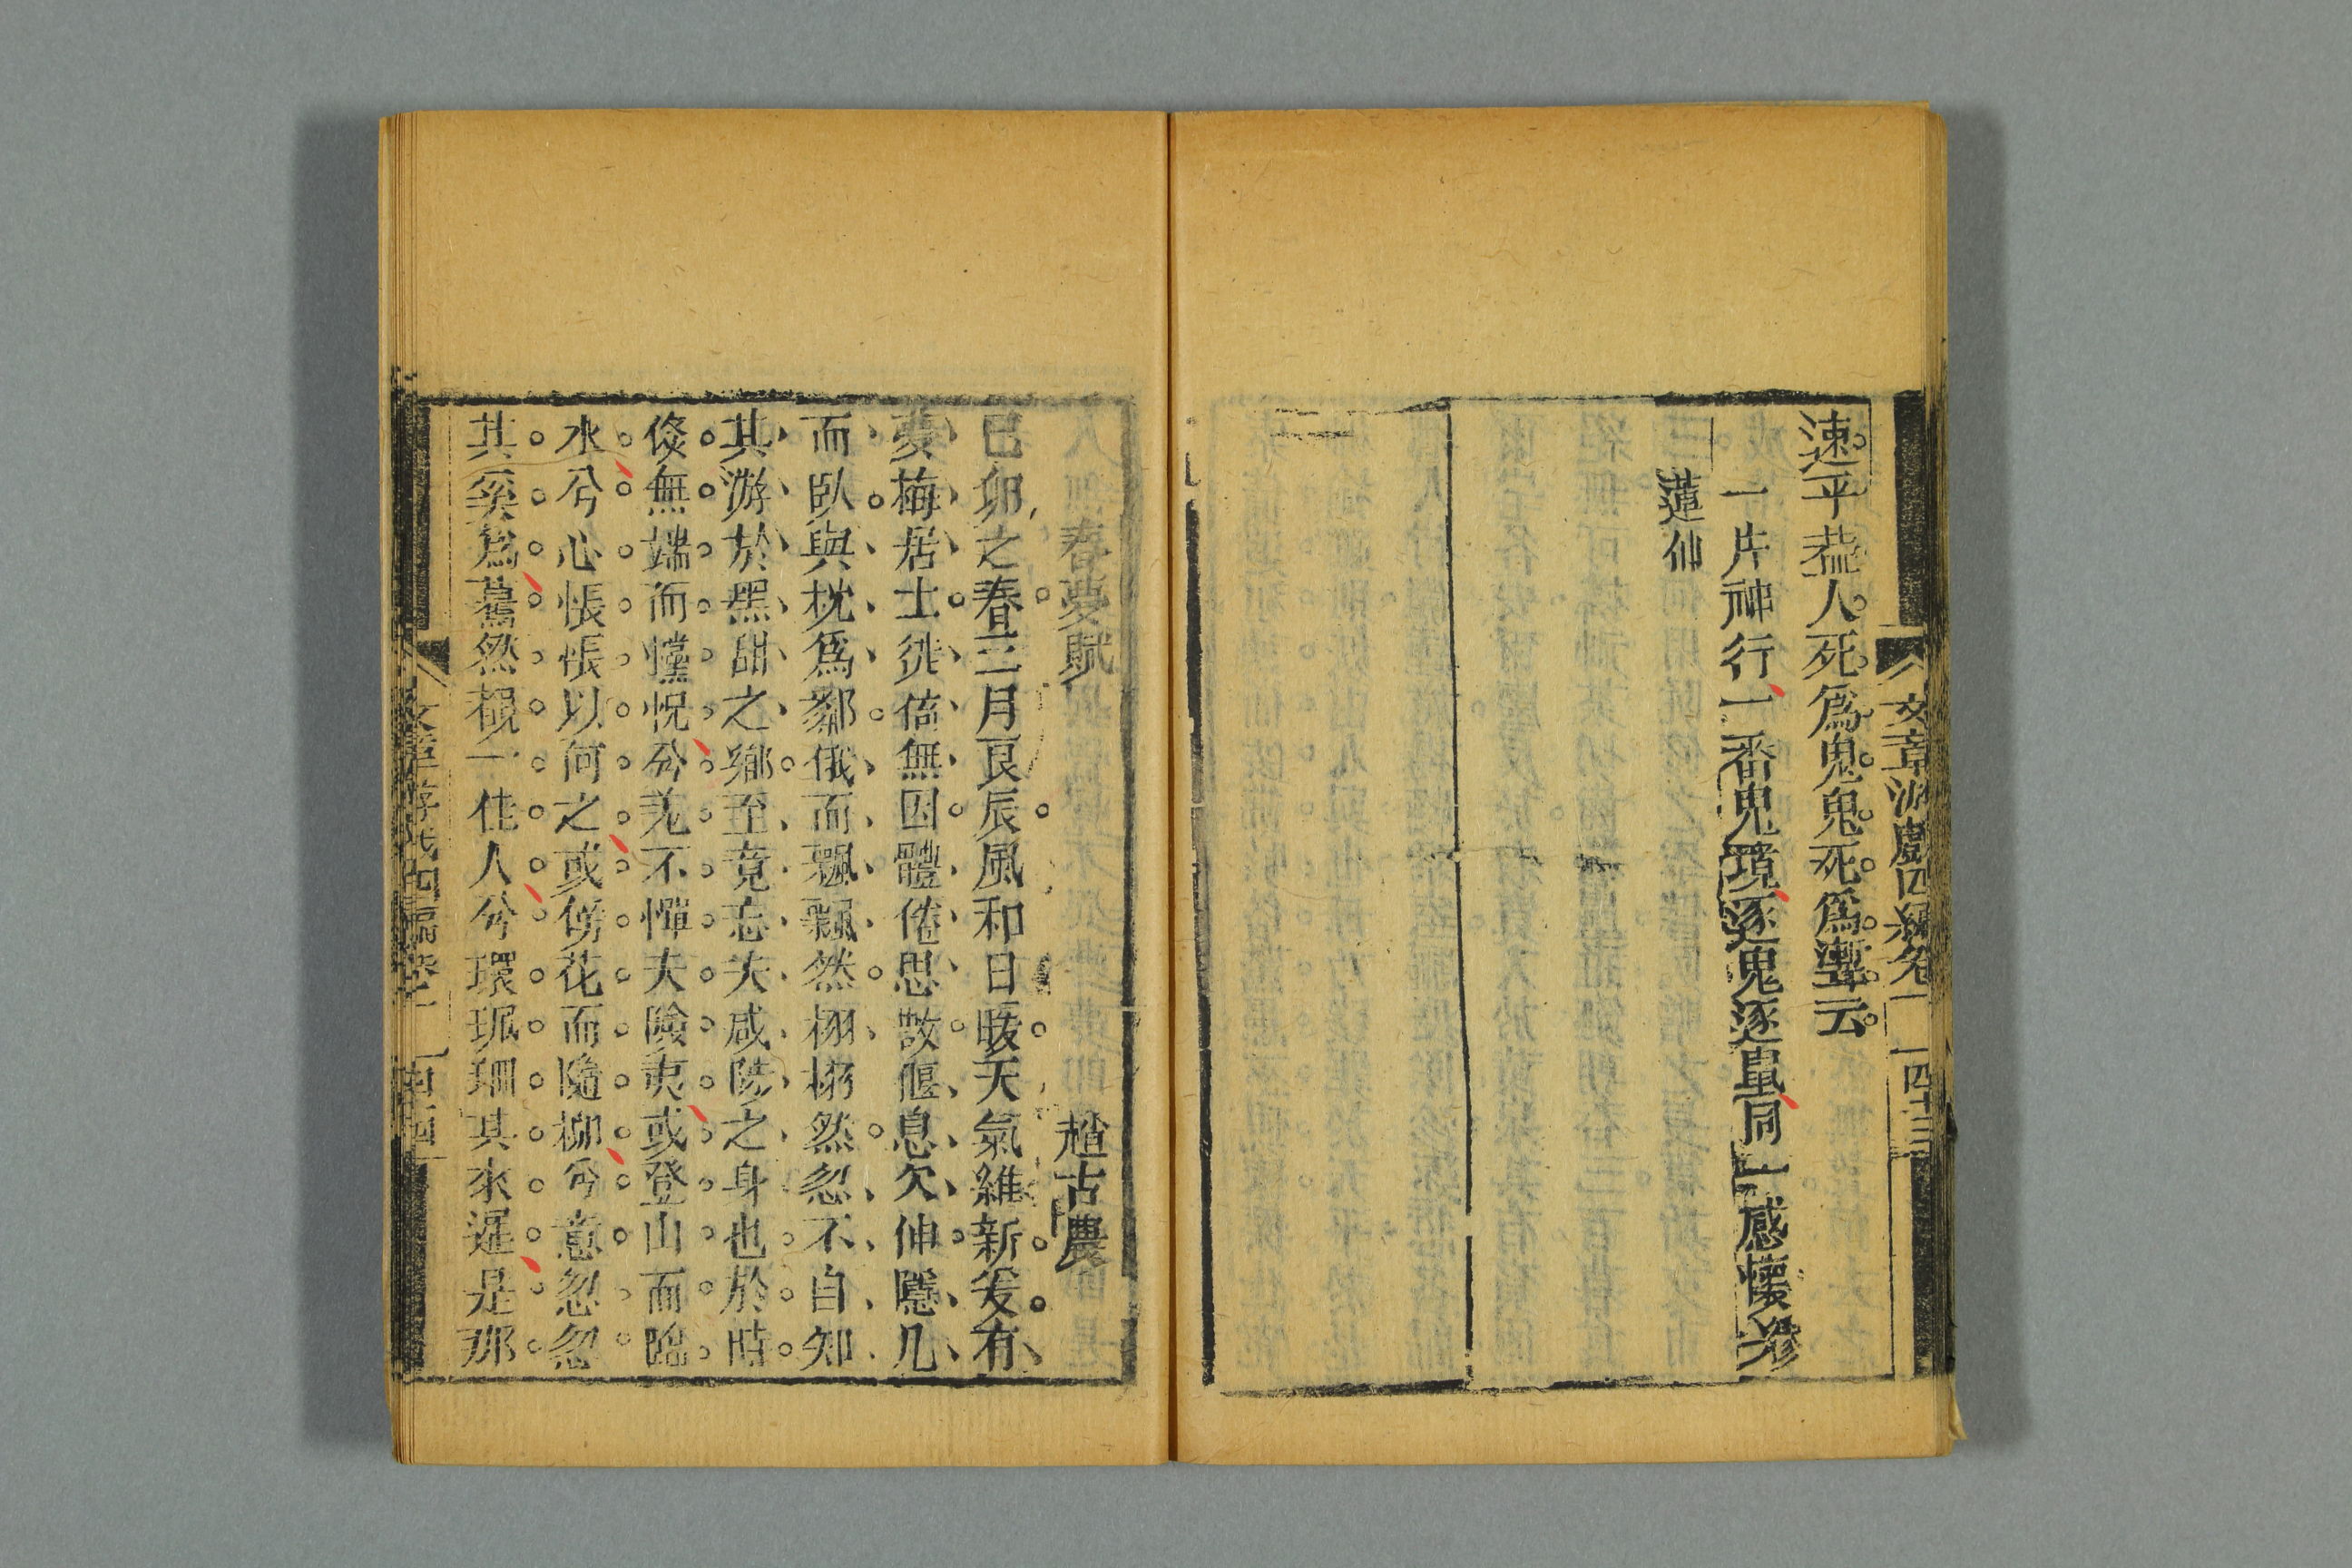 文章游戲四編卷一 四十三
速乎蓋人死爲鬼鬼死爲魙云
一片神行一番鬼境逐鬼逐虽同一感懷
蓮仙
春夢賦 古農
己卯之春三月良辰風和日暖天氣維新爰有
夢梅居士徙倚無因體倦思散偃息欠伸隱几
而臥與枕爲鄰俄而飄飄然栩栩然忽不自知
其游於黑甜之鄉至竟忘夫戚施之身也於時
倐無端而懭怳兮羌不憚夫險夷或登山而臨
水兮心悵悵以何之或傍花而隨柳兮意忽忽
其奚爲驀然覩一佳人兮環珮珊其來遲是耶
文章游戲四編卷一